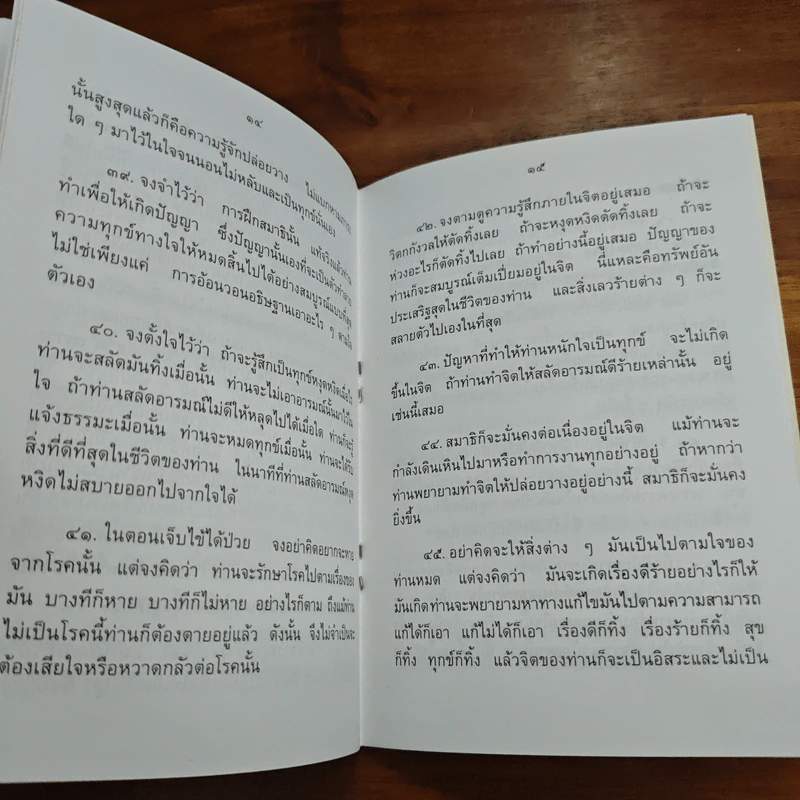 ๑๔
นั้นสูงสุดแล้วก็คือความรู้จักปล่อยวาง ไม่แบกหาม
ใด ๆ มาไว้ในใจจนนอนไม่หลับและเป็นทุกข์นั่นเอง
๓๙. จงจำไว้ว่า การฝึกสมาธินั้น แท้จริงแล้วท่าน
ทำเพื่อให้เกิดปัญญา ซึ่งปัญญานั้นเองที่จะเป็นตัวทำลาย
ความทุกข์ทางใจให้หมดสิ้นไปได้อย่างสมบูรณ์แบบที่สุด
ไม่ใช่เพียงแค่ การอ้อนวอนอธิษฐานเอาอะไร ๆ
ตัวเอง
๔๐. จงตั้งใจไว้ว่า ถ้าจะรู้สึกเป็นทุกข์หงุดหงิดเมื่อใด
ท่านจะสลัดมันทิ้งเมื่อนั้น ท่านจะไม่เอาอารมณ์นั้นมาไว้ใน
ใจ ถ้าท่านสลัดอารมณ์ไม่ดีให้หลุดไปได้เมื่อใด ท่านก็จะรู้
แจ้งธรรมะเมื่อนั้น ท่านจะหมดทุกข์เมื่อนั้น ท่านจะได้รับ
สิ่งที่ดีที่สุดในชีวิตของท่าน ในนาทีที่ท่านสลัดอารมณ์หงุด
หงิดไม่สบายออกไปจากใจได้
๔๑. ในตอนเจ็บไข้ได้ป่วย จงอย่าคิดอยากจะหาย
จากโรคนั้น แต่จงคิดว่า ท่านจะรักษาโรคไปตามเรื่องของ
มัน บางทีก็หาย บางทีก็ไม่หาย อย่างไรก็ตาม ถึงแม้ท่าน
ไม่เป็นโรคนี้ท่านก็ต้องตายอยู่แล้ว ดังนั้น จึงไม่จำเป็นจะ
ต้องเสียใจหรือหวาดกลัวต่อโรคนั้น
๑๕
๔๒. จงตามดูความรู้สึกภายในจิตอยู่เสมอ ถ้าจะ
วิตกกังวลให้ตัดทิ้งเลย ถ้าจะหงุดหงิดตัดทิ้งเลย ถ้าจะ
ห่วงอะไรก็ตัดทิ้งไปเลย ถ้าทำอย่างนี้อยู่เสมอ ปัญญาของ
ท่านก็จะสมบูรณ์เต็มเปี่ยมอยู่ในจิต นี่แหละคือทรัพย์อัน
ประเสริฐสุดในชีวิตของท่าน และสิ่งเลวร้ายต่าง ๆ ก็จะ
สลายตัวไปเองในที่สุด
๔๓. ปัญหาที่ทำให้ท่านหนักใจเป็นทุกข์ จะไม่เกิด
ขึ้นในจิต ถ้าท่านทำจิตให้สลัดอารมณ์ดีร้ายเหล่านั้น อยู่
เช่นนี้เสมอ
๔๔. สมาธิก็จะมั่นคงต่อเนื่องอยู่ในจิต แม้ท่านจะ
กำลังเดินเหินไปมาหรือทำการงานทุกอย่างอยู่ ถ้าหากว่า
ท่านพยายามทำจิตให้ปล่อยวางอยู่อย่างนี้ สมาธิก็จะมั่นคง
ยิ่งขึ้น
๔๕. อย่าคิดจะให้สิ่งต่าง ๆ มันเป็นไปตามใจของ
ท่านหมด แต่จงคิดว่า มันจะเกิดเรื่องดีร้ายอย่างไรก็ให้
มันเกิดท่านจะพยายามหาทางแก้ไขมันไปตามความสามารถ
แก้ได้ก็เอา แก้ไม่ได้ก็เอา เรื่องดีก็ทิ้ง เรื่องร้ายก็ทิ้ง สุข
ก็ทิ้ง ทุกข์ก็ทิ้ง แล้วจิตของท่านก็จะเป็นอิสระและไม่เป็น